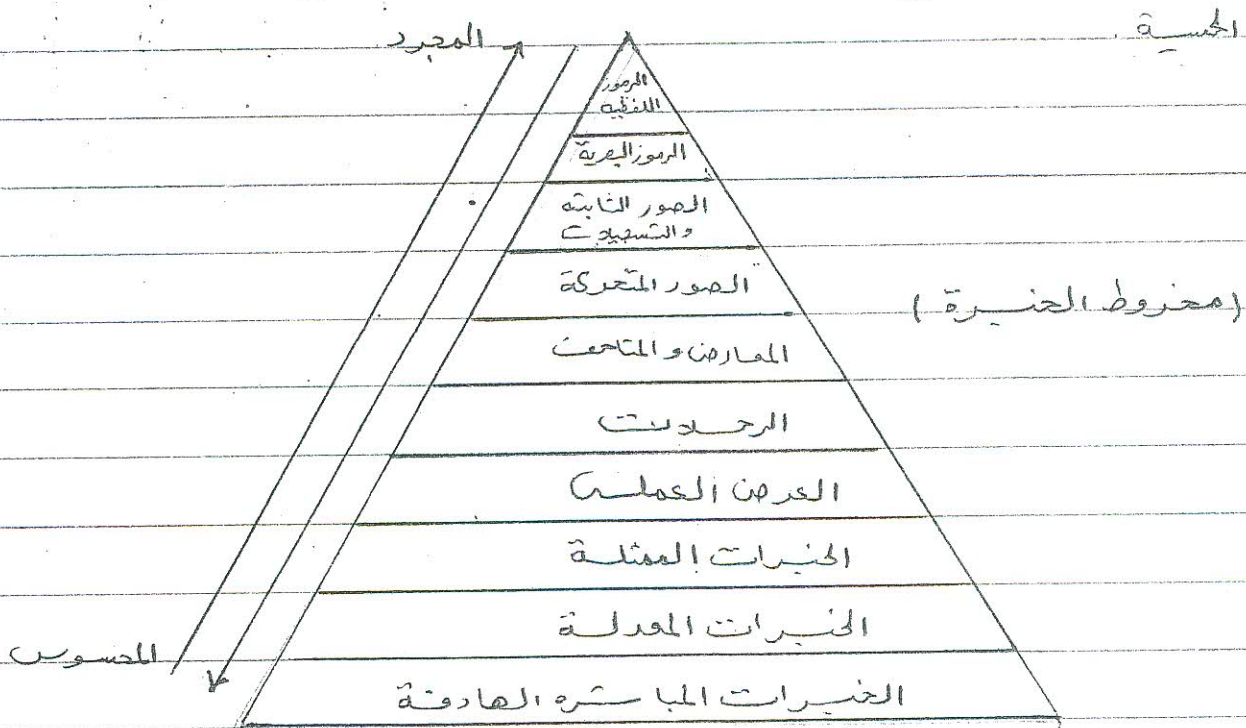 الحسية
المجرد
الرموز
اللفظية
الرموز البصرية
الصور الثابته
والتسجيلات
الصور المتحركة
(مخروط الخبرة)
المعارض والمتاحف
الرحلات
العرض العملي
الخبرات الممثلة
الخبرات المعدلة
المحسوس
الخبرات المباشره الهادفة